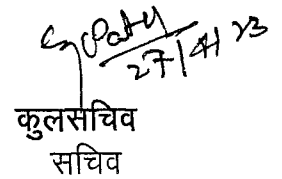 27/4/23
कुलसचिव
सचिव